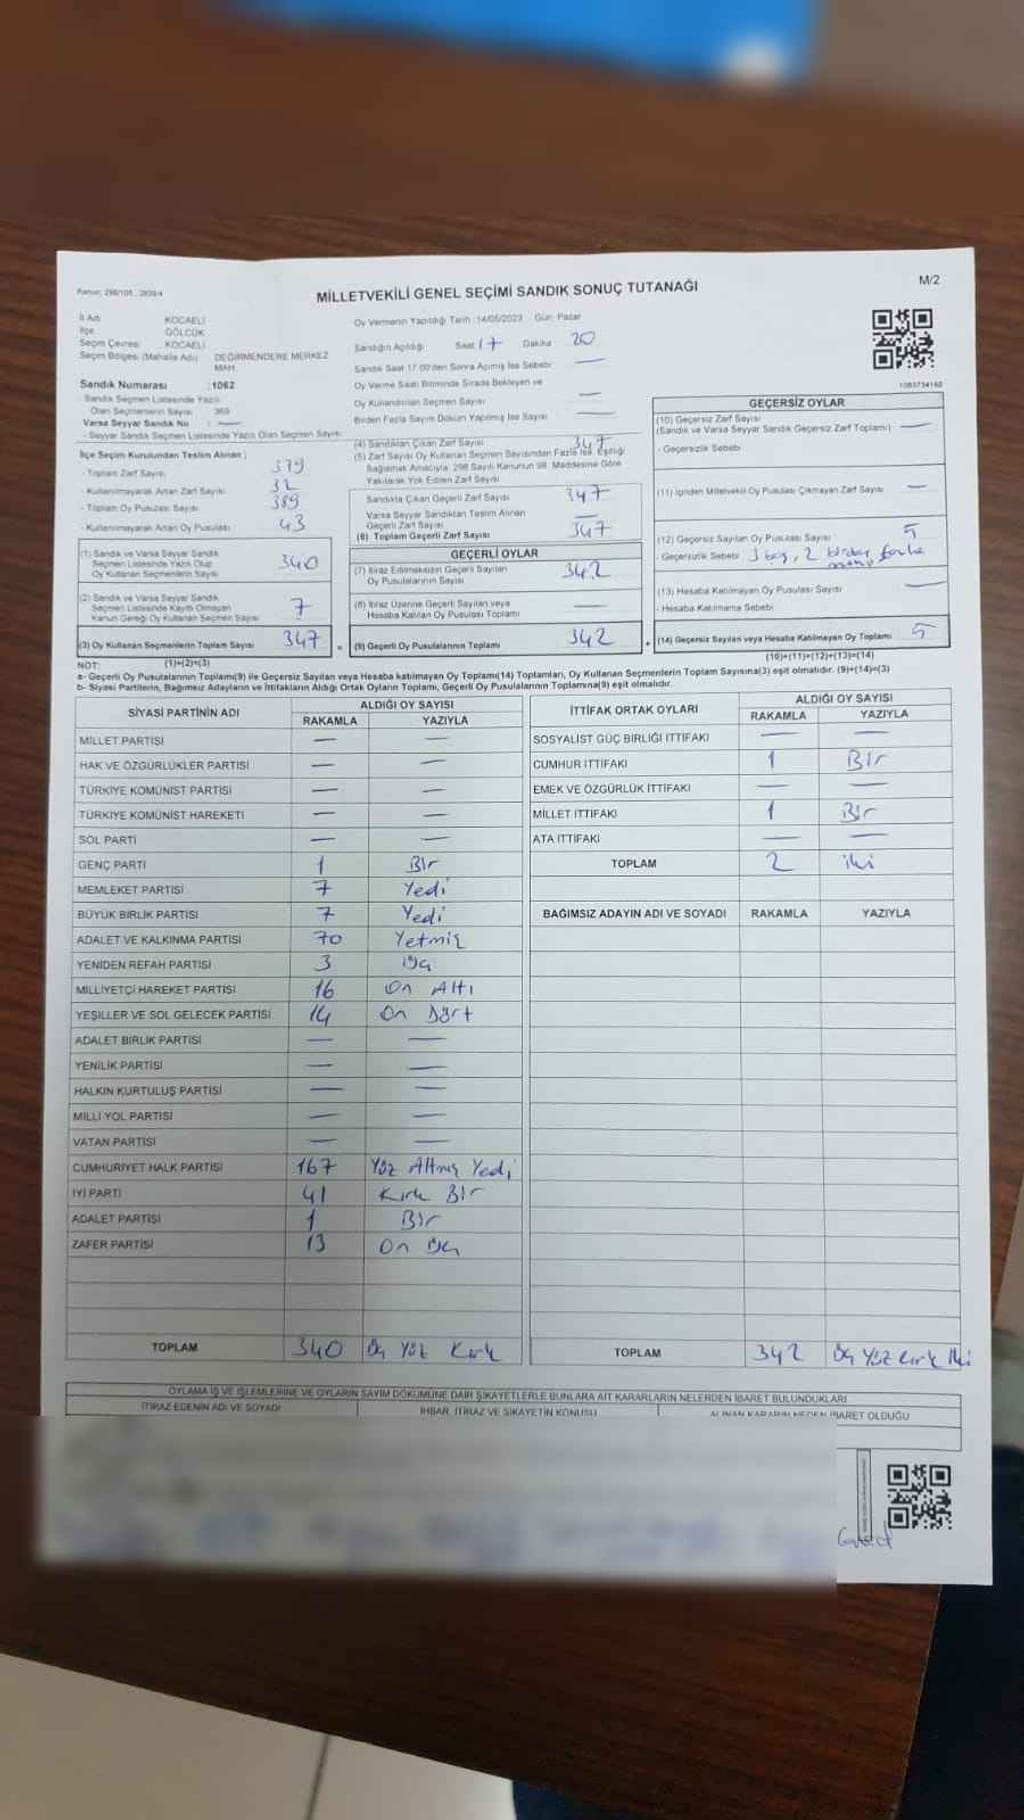 Kanun: 298/105 , 2839/4
M/2
MİLLETVEKİLİ GENEL SEÇİMİ SANDIK SONUÇ TUTANAĞI
İl Adı KOCAELİ
İlçe GÖLCÜK
Seçim Çevresi KOCAELİ
Seçim Bölgesi (Mahalle Adı) DEĞİRMENDERE MERKEZ MAH.
Sandık Numarası :1062
- Sandık Seçmen Listesinde Yazılı
Olan Seçmenlerin Sayısı 369
Varsa Seyyar Sandık No : —
- Seyyar Sandık Seçmen Listesinde Yazılı Olan Seçmen Sayısı
İlçe Seçim Kurulundan Teslim Alınan ;
- Toplam Zarf Sayısı 379
- Kullanılmayarak Artan Zarf Sayısı 32
- Toplam Oy Pusulası Sayısı 389
- Kullanılmayarak Artan Oy Pusulası 43
(1) Sandık ve Varsa Seyyar Sandık
Seçmen Listesinde Yazılı Olup
Oy Kullanan Seçmenlerin Sayısı 340
(2) Sandık ve Varsa Seyyar Sandık
Seçmen Listesinde Kayıtlı Olmayan
Kanun Gereği Oy Kullanan Seçmen Sayısı 7
(3) Oy Kullanan Seçmenlerin Toplam Sayısı 347
(1)+(2)=(3)
Oy Vermenin Yapıldığı Tarih :14/05/2023 Gün: Pazar
Sandığın Açıldığı Saat 17 Dakika 20
Sandık Saat 17:00'den Sonra Açılmış İse Sebebi —
Oy Verme Saati Bitiminde Sırada Bekleyen ve
Oy Kullandırılan Seçmen Sayısı —
Birden Fazla Sayım Döküm Yapılmış İse Sayısı —
(4) Sandıktan Çıkan Zarf Sayısı 347
(5) Zarf Sayısı Oy Kullanan Seçmen Sayısından Fazla İse Eşitliği
Sağlamak Amacıyla 298 Sayılı Kanunun 98. Maddesine Göre
Yakılarak Yok Edilen Zarf Sayısı
Sandıkta Çıkan Geçerli Zarf Sayısı 347
Varsa Seyyar Sandıktan Teslim Alınan
Geçerli Zarf Sayısı —
(6) Toplam Geçerli Zarf Sayısı 347
GEÇERLİ OYLAR
(7) İtiraz Edilmeksizin Geçerli Sayılan
Oy Pusulalarının Sayısı 342
(8) İtiraz Üzerine Geçerli Sayılan veya
Hesaba Katılan Oy Pusulası Toplamı —
(9) Geçerli Oy Pusulalarının Toplamı 342
1083734162
GEÇERSİZ OYLAR
(10) Geçersiz Zarf Sayısı
(Sandık ve Varsa Seyyar Sandık Geçersiz Zarf Toplamı) —
- Geçersizlik Sebebi
(11) İçinden Milletvekili Oy Pusulası Çıkmayan Zarf Sayısı —
(12) Geçersiz Sayılan Oy Pusulası Sayısı 5
- Geçersizlik Sebebi 3 boş, 2 birden fazla
(13) Hesaba Katılmayan Oy Pusulası Sayısı —
- Hesaba Katılmama Sebebi
(14) Geçersiz Sayılan veya Hesaba Katılmayan Oy Toplamı 5
(10)+(11)+(12)+(13)=(14)
NOT:
a- Geçerli Oy Pusulalarının Toplamı(9) ile Geçersiz Sayılan veya Hesaba katılmayan Oy Toplamı(14) Toplamları, Oy Kullanan Seçmenlerin Toplam Sayısına(3) eşit olmalıdır. (9)+(14)=(3)
b- Siyasi Partilerin, Bağımsız Adayların ve İttifakların Aldığı Ortak Oyların Toplamı, Geçerli Oy Pusulalarının Toplamına(9) eşit olmalıdır.
SİYASİ PARTİNİN ADI ALDIĞI OY SAYISI
RAKAMLA YAZIYLA
MİLLET PARTİSİ — —
HAK VE ÖZGÜRLÜKLER PARTİSİ — —
TÜRKİYE KOMÜNİST PARTİSİ — —
TÜRKİYE KOMÜNİST HAREKETİ — —
SOL PARTİ — —
GENÇ PARTİ 1 Bir
MEMLEKET PARTİSİ 7 Yedi
BÜYÜK BİRLİK PARTİSİ 7 Yedi
ADALET VE KALKINMA PARTİSİ 70 Yetmiş
YENİDEN REFAH PARTİSİ 3 Üç
MİLLİYETÇİ HAREKET PARTİSİ 16 On Altı
YEŞİLLER VE SOL GELECEK PARTİSİ 14 On Dört
ADALET BİRLİK PARTİSİ — —
YENİLİK PARTİSİ — —
HALKIN KURTULUŞ PARTİSİ — —
MİLLİ YOL PARTİSİ — —
VATAN PARTİSİ — —
CUMHURİYET HALK PARTİSİ 167 Yüz Altmış Yedi
İYİ PARTİ 41 Kırk Bir
ADALET PARTİSİ 1 Bir
ZAFER PARTİSİ 13 On Üç
TOPLAM 340 Üç Yüz Kırk
İTTİFAK ORTAK OYLARI ALDIĞI OY SAYISI
RAKAMLA YAZIYLA
SOSYALİST GÜÇ BİRLİĞİ İTTİFAKI — —
CUMHUR İTTİFAKI 1 Bir
EMEK VE ÖZGÜRLÜK İTTİFAKI — —
MİLLET İTTİFAKI 1 Bir
ATA İTTİFAKI — —
TOPLAM 2 iki
BAĞIMSIZ ADAYIN ADI VE SOYADI RAKAMLA YAZIYLA
TOPLAM 342 Üç Yüz Kırk İki
OYLAMA İŞ VE İŞLEMLERİNE VE OYLARIN SAYIM DÖKÜMÜNE DAİR ŞİKAYETLERLE BUNLARA AİT KARARLARIN NELERDEN İBARET BULUNDUKLARI
İTİRAZ EDENİN ADI VE SOYADI İHBAR, İTİRAZ VE ŞİKAYETİN KONUSU ALINAN KARARIN NEDEN İBARET OLDUĞU